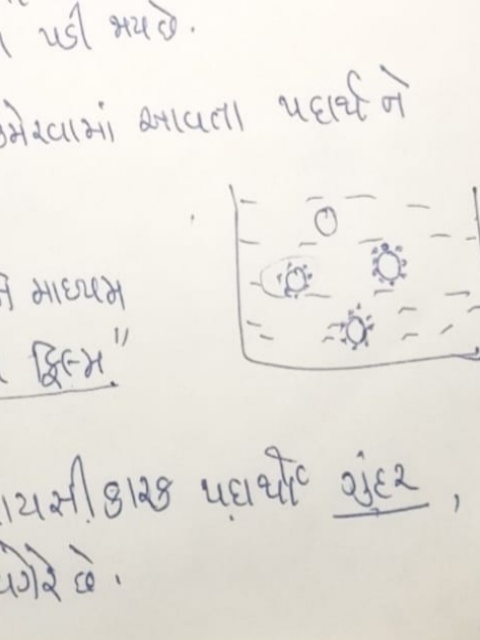 પડી જાય છે.
ઉમેરવામાં આવતા પદાર્થ ને
માધ્યમ
ફિલ્મ"
પાયસીકારક પદાર્થો ગુંદર,
વગેરે છે.